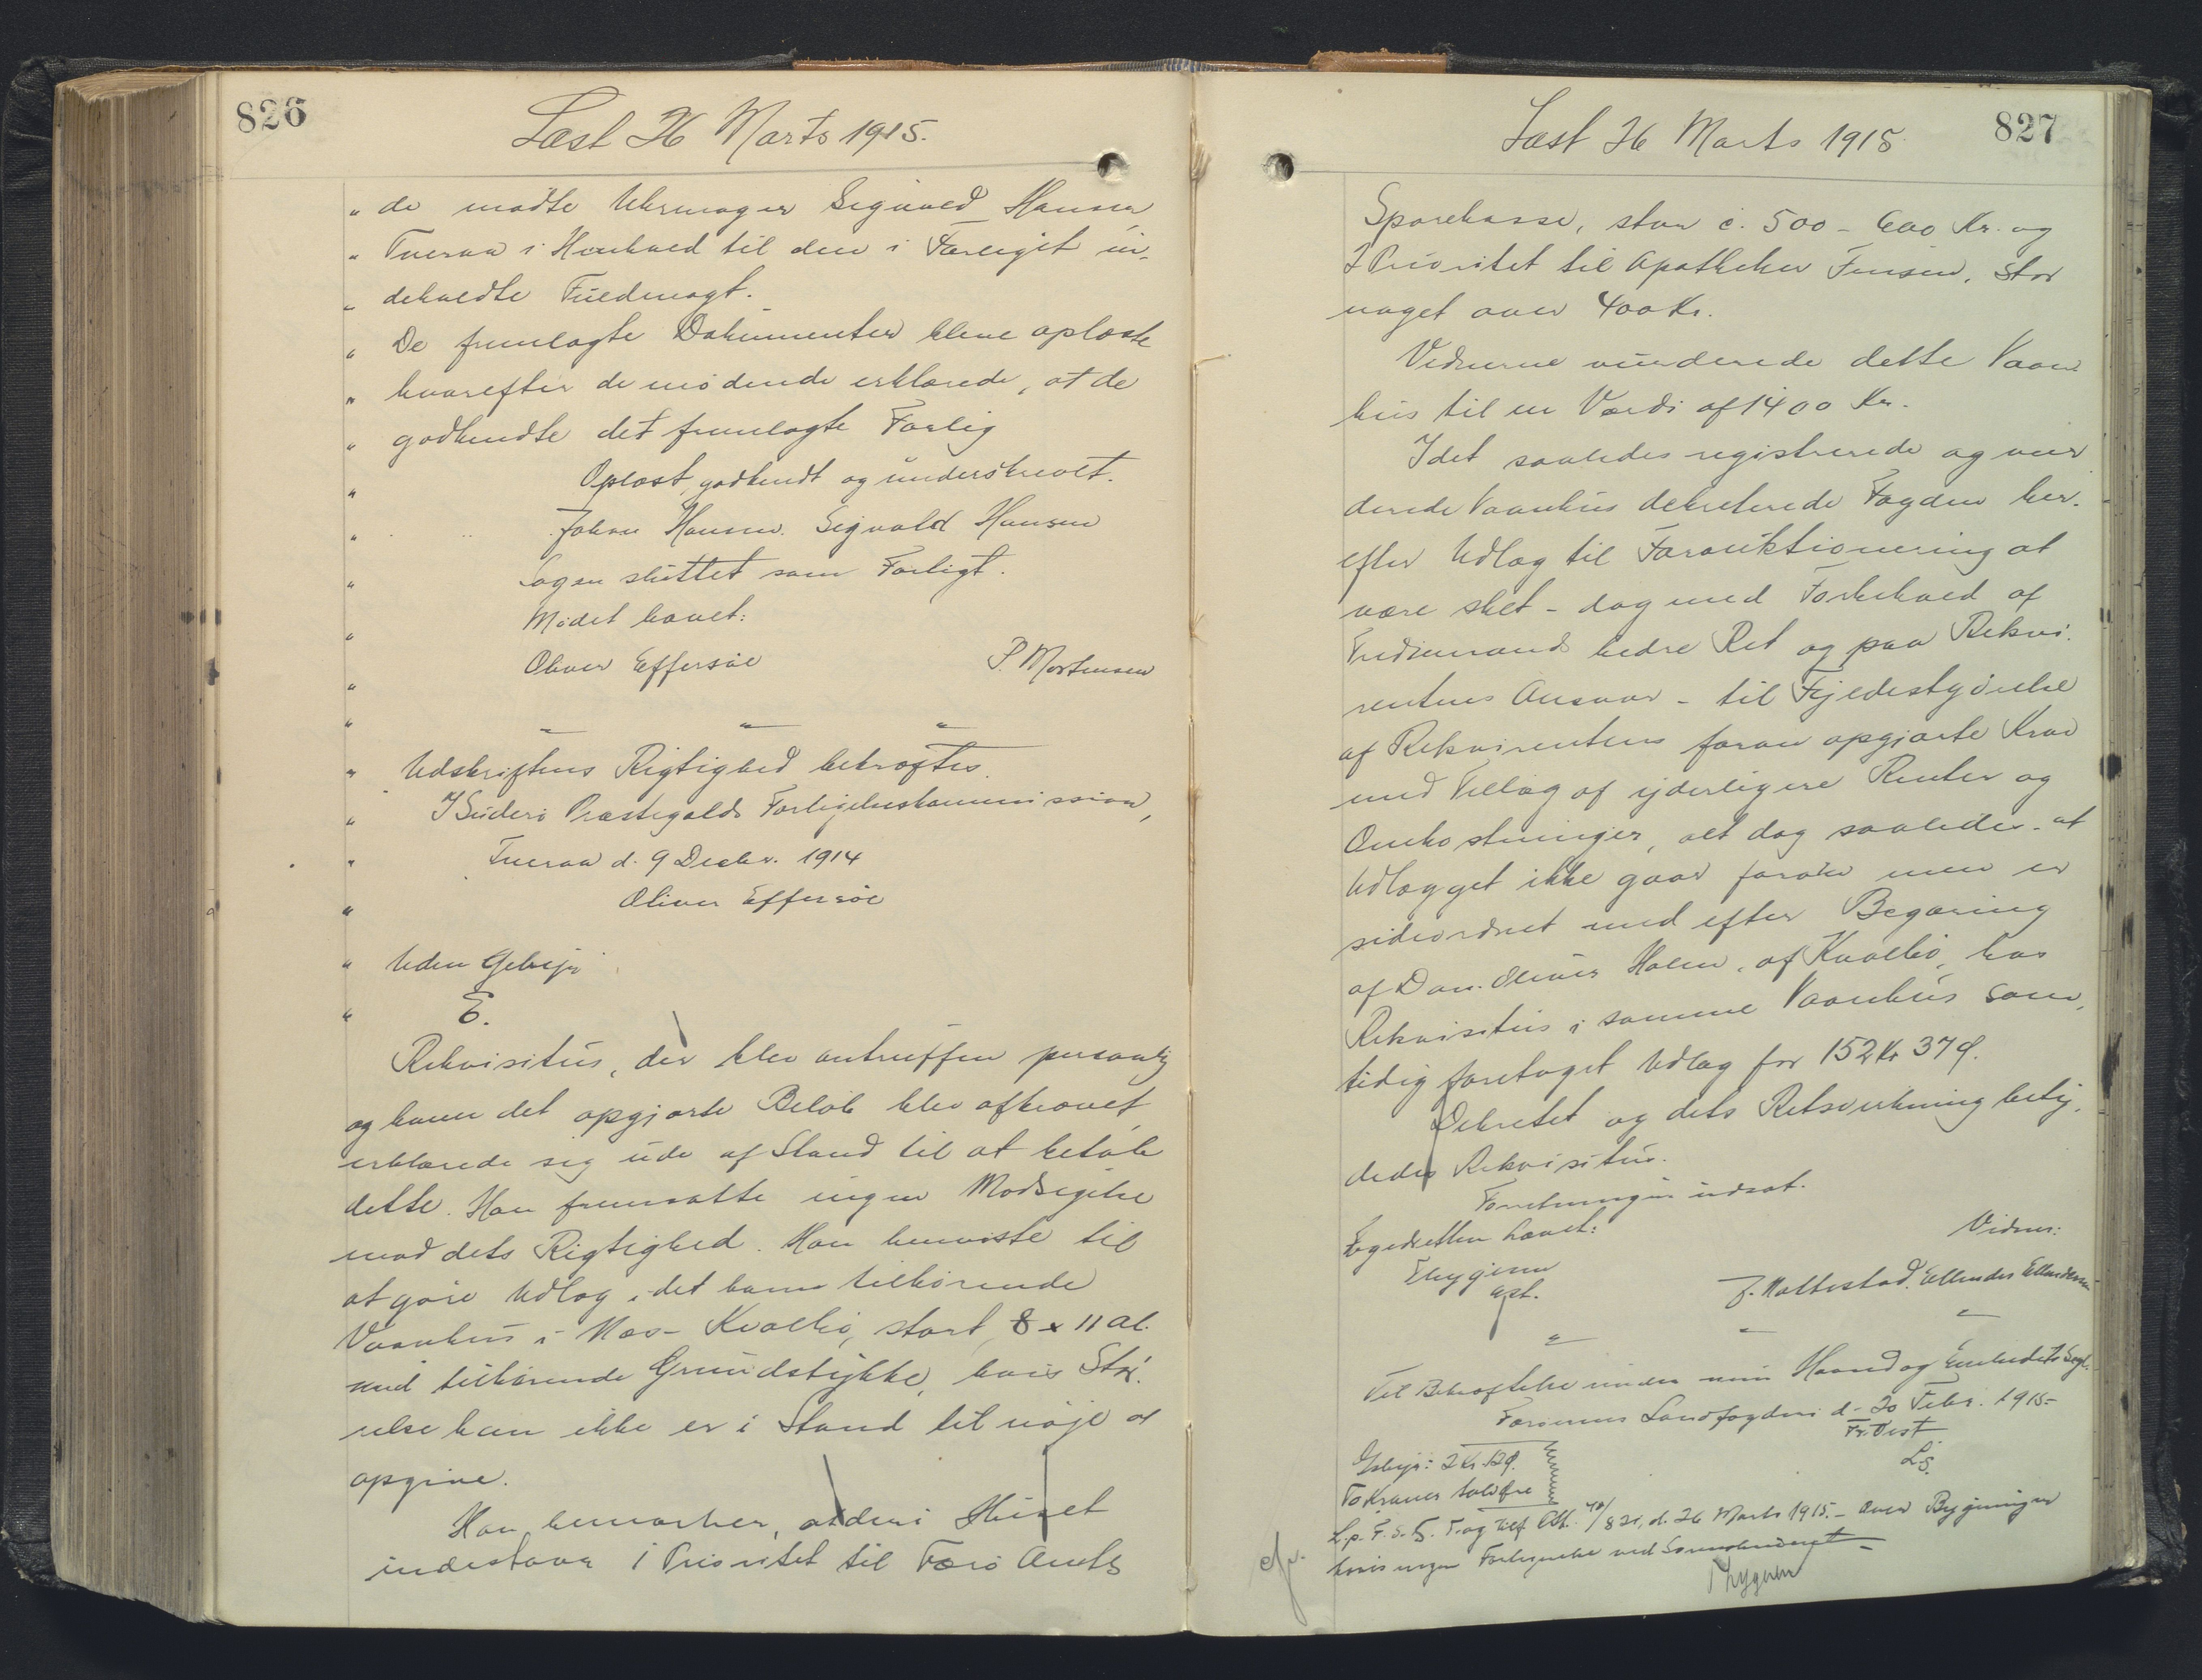 826
Læst 26 Marts 1915.
" de mødte Uhrmager Sigvald Hansen
" Tveraa i Henhold til den i Forliget in-
" deholdte Fuldmagt.
" De fremlagte Dokumenter bleve oplæste
" hvorefter de mødende erklærede, at de
" godkendte det fremlagte Forlig
" Oplæst, godkendt og underskrevet.
" Johan Hansen. Sigvald Hansen
" Sagen sluttet som Forligt.
" Mødet hævet:
" Oliver Effersøe P. Mortensen
" " " "
" Udskriftens Rigtighed bekræftes.
" I Suderø Præstegælds Forligelseskommission,
" Tveraa d. 9 Decbr. 1914
" Oliver Effersøe
" Uden Gebyr
" E.
Rekvisitus, der blev antruffen personlig
og hvem det opgjorte Beløb blev afkrævet,
erklærede sig ude af Stand til at betale
dette. Han fremsatte ingen Modsigelse
mod dets Rigtighed. Han henviste til
at gøre Udlæg i det ham tilhørende
Vaanhus i Næs - Kvalbø, stort 8 x 11 al.
med tilhørende Grundstykke, hvis Stør-
relse han ikke er i Stand til nøje at
opgive.
Han bemærker, at der i Huset
indestaar 1 Prioritet til Færø Amts
827
Læst 26 Marts 1915
Sparekasse, stor c. 500 - 600 Kr. og
2 Prioritet til Apotheker Jensen, stor
noget over 400 Kr.
Vidnerne vurderede dette Vaan-
hus til en Værdi af 1400 Kr.
I det saaledes registrerede og vur-
derede Vaanhus dekreterede Fogden her-
efter Udlæg til Forauktionering at
være sket - dog med Forbehold af
Trediemands bedre Ret og paa Rekvi-
rentens Ansvar - til Fyldestgørelse
af Rekvirentens foran opgjorte Krav
med Tillæg af yderligere Renter og
Omkostninger, alt dog saaledes, at
Udlægget ikke gaar foran men er
sideordnet med efter Begæring
af Dan. Oliver Holm, af Kvalbø, hos
Rekvisitus i samme Vaanhus sam-
tidig foretaget Udlæg for 152 Kr 37 Ø.
Dekretet og dets Retsvirkning bety-
dedes Rekvisitus.
Forretningen udsat.
Fogedretten hævet: Vidner:
Thygesen J. Holtestad. Ellendur Ellendersen
cst.
" " "
Til Bekræftelse under min Haand og Embedets Segl.
Færøernes Landfogderi d. 20 Febr. 1915.
Fr. Vest
L.S.
Gebyr: 2 Kr. 12 Ø.
To Kroner tolv Øre
L.p. F.S. 5. T. og Ulf. Off. d. 26 Marts 1915. - over Bygninger
hvis ingen Forhyrelse ved
Thygesen